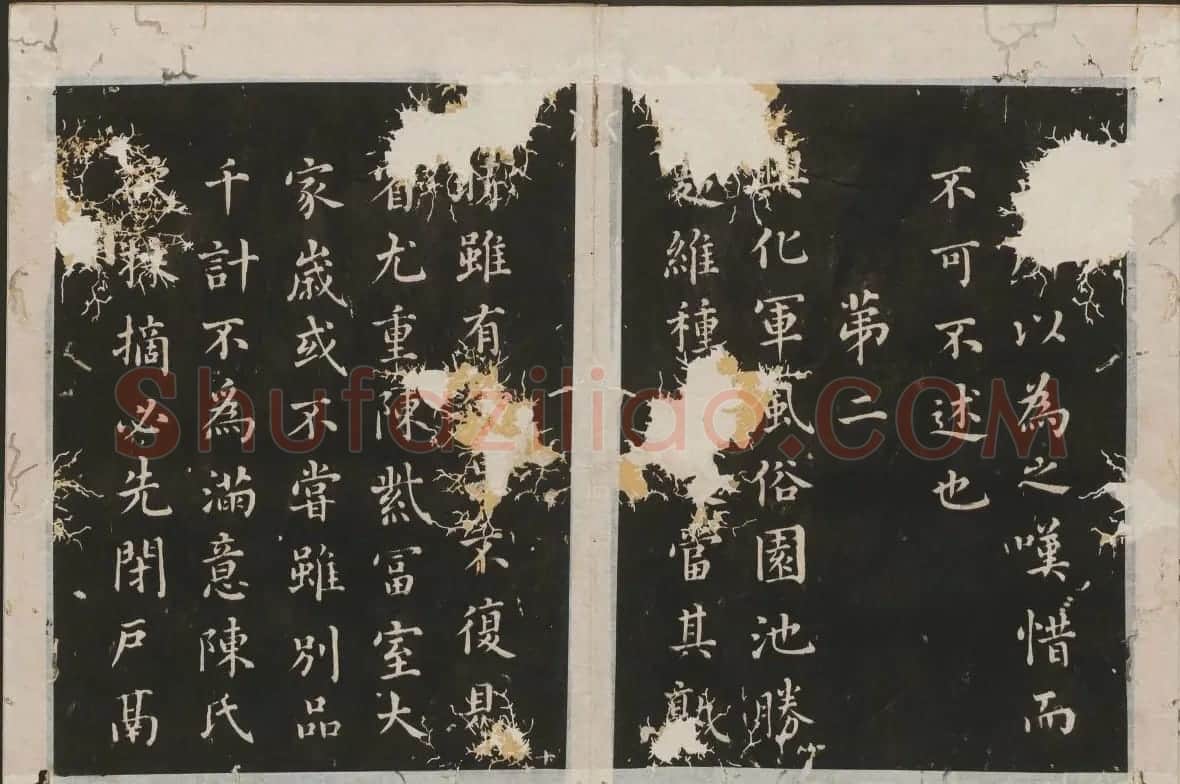 以為之嘆惜而
不可不述也
苐二
興化軍風俗園池勝
處維種當其熟
時雖有不復見
省尤重陳紫冨室大
家歲或不嘗雖別品
千計不爲滿意陳氏
採摘必先閉戶鬲
Shufaziliao.COM